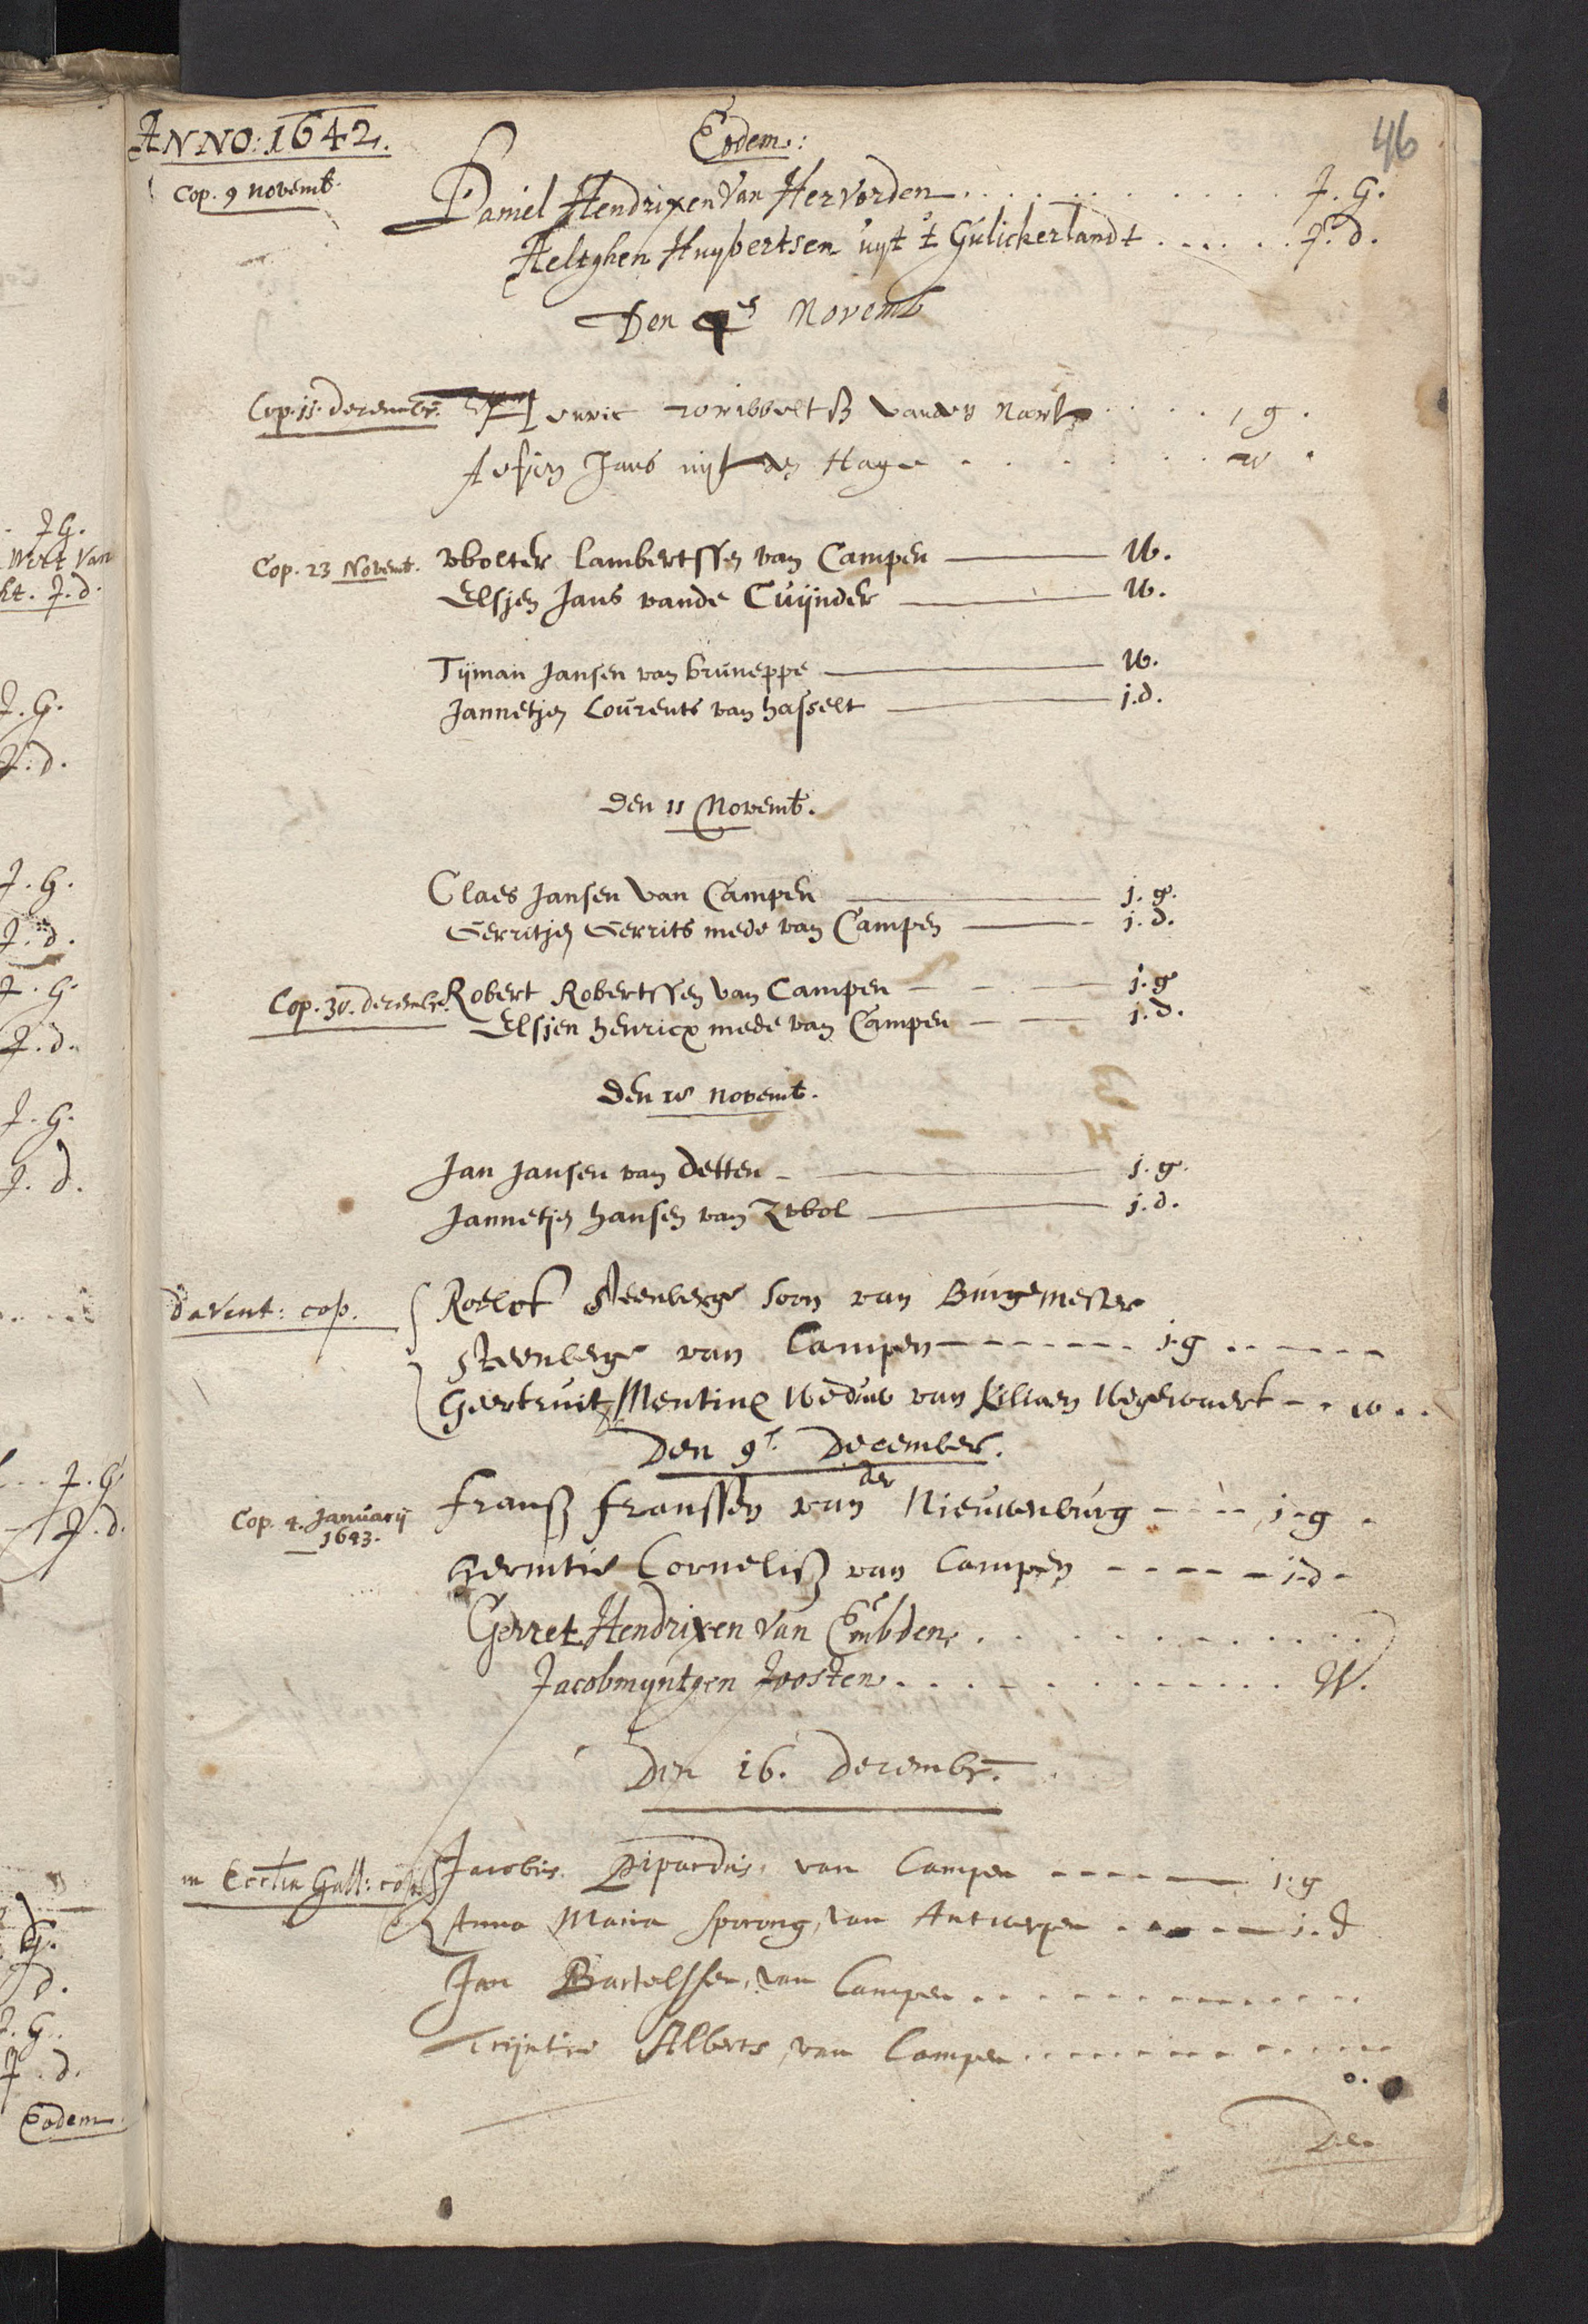 46
ANNO: 1642.
Eodem:
Cop. 9 novemb.
Daniel Hendrixen Van Hervorden . . . . . . . . . . . . J. G.
Aeltghen Huybertsen uyt 't Gulickerlandt . . . . . . J. d.
Den 4 Novemb
Cop. 11. decembr.
. . . . , g .
Jans uyt den Hage . . . . . . w .
Cop. 23 Novemb. Wolter Lambertssen van Campen — W.
Elsjen Jans vande Cuijnder — W.
Tijman Jansen van bruneppe — W.
Jannetjen Lourents van hasselt — j.d.
Den 11 Novemb.
Claes Jansen Van Campen — j. g.
Gerritjen Gerrits mede van Campen — j. d.
Cop. 30. decembr. Robert Robertssen van Campen — j. g
Elsjen henricx mede van Campen — j. d.
Den 18 novemb.
Jan Jansen van Detten — j. g.
Jannetjen hansen van Zwol — j. d.
davent: cop.
Roelof Steenberge soon van Burgemester
Steenberge van Campen - - - - - - - j.g - - - - - -
Geertruit Mentinck Weduw van Kiliaen Wegewaert - . w . .
Den 9. December.
Cop. 4. Januarij
1643.
Franß Franssen van der Nieuwenburg - - - - , j-g .
Hermtie Corneliß van Campen - - - - - j-d -
Gerret Hendrixen Van Embden . . . . . . . . . . .
Jacobmyntgen Joosten . . . . . . . . . . . . W.
Den 16. Decembr.
in Ecclia Gall: cop.
Jacobus Pipardus, van Campen - - - - — j: g
Anna Maria van Antwerpen . - - - — j. d
Jan Bartelssen, van Campen . . . . . . . . . . . . .
Trijntie Alberts, van Campen . . . . . . . . . . . . .
Den
J G.
Wert Van
J. d.
J. G.
J. d.
J. G.
J. d.
J. G.
J. d.
J. G.
J. d.
J. G.
J. d.
G.
d.
J. G.
J. d.
Eodem